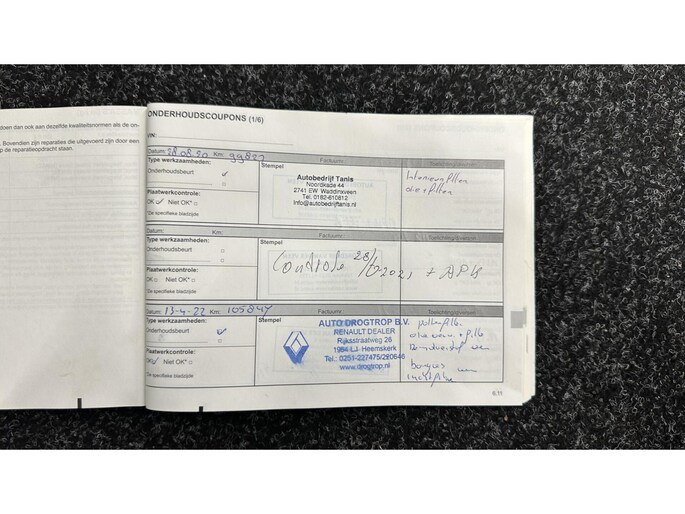 dseen dan ook aan dezelfde kwaliteitsnormen als de on-
. Bovendien zijn reparaties die uitgevoerd zijn door een
p de reparatieopdracht staan.
ONDERHOUDSCOUPONS (1/6)
VIN:
Datum: 28.08.20 Km: 99821
Factuurnr.
Type werkzaamheden:
Stempel
Onderhoudsbeurt
Plaatwerkcontrole:
OK Niet OK*
*Zie specifieke bladzijde
Autobedrijf Tanis
Noordkade 44
2741 EW Waddinxveen
Tel: 0182-610812
Info@autobedrijftanis.nl
Interieurfilter
olie + filter
Datum: Km:
Factuurnr.
Type werkzaamheden:
Stempel
Onderhoudsbeurt
Plaatwerkcontrole:
OK Niet OK*
*Zie specifieke bladzijde
Controle 2021 + APK
Datum: 13-4-22 Km: 105847
Factuurnr.
Type werkzaamheden:
Stempel
Onderhoudsbeurt
Plaatwerkcontrole:
OK Niet OK*
*Zie specifieke bladzijde
AUTO DROGTROP B.V.
RENAULT DEALER
Rijksstraatweg 26
1964 LJ Heemskerk
Tel.: 0251-237475/290646
www.drogtrop.nl
pollenfilter
bougies
luchtfilter
6.11